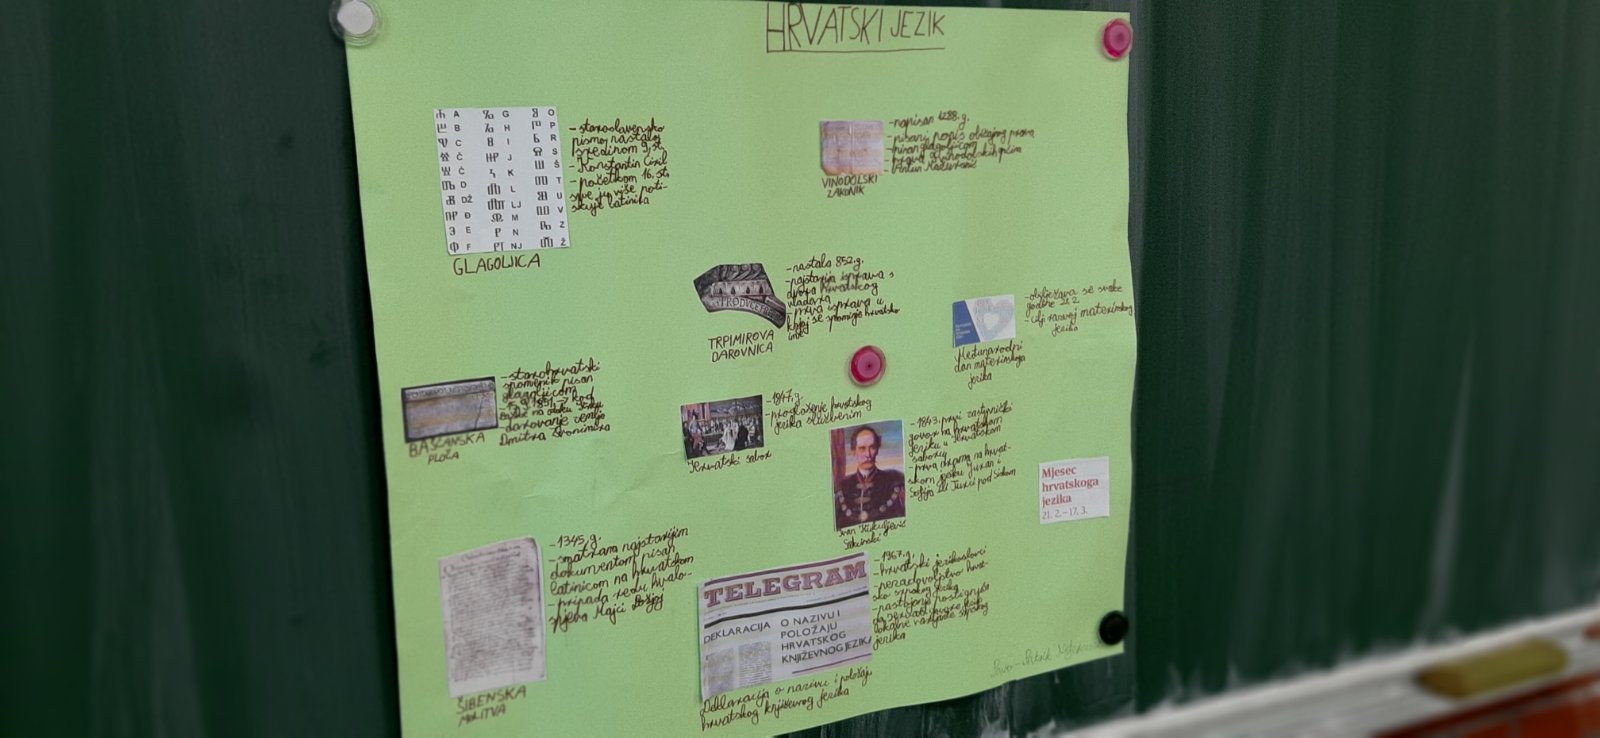 HRVATSKI JEZIK
A G O
B H P
C I R
Č J S
Ć K Š
D L T
DŽ LJ U
Đ M V
E N Z
F NJ Ž
GLAGOLJICA
- staroslavensko
pismo nastalo
sredinom 9. st.
- Konstantin Ćiril
- početkom 16. st.
sve ju više poti-
skuje latinica
VINODOLSKI
ZAKONIK
- napisan 1288. g.
- pisani popis običajnog prava
- pisan glagoljicom
TRPIMIROVA
DAROVNICA
- nastala 852. g.
- najstarija isprava s
dvora hrvatskog
vladara
- prva isprava u
kojoj se spominje hrvatsko
ime
Međunarodni
dan materinskog
jezika
- obilježava se svake
godine 21.2.
- cilj razvoj materinskog
jezika
BAŠĆANSKA
PLOČA
- starohrvatski
spomenik pisan
glagoljicom
1851. kod
Baške na otoku Krku
- darovanje zemlje
Dmitra Zvonimira
Hrvatski sabor
- 1847. g.
- proglašenje hrvatskog
jezika službenim
Ivan Kukuljević
Sakcinski
- 1843. prvi zastupnički
govor na hrvatskom
jeziku u Hrvatskom
saboru
- prva drama na hrvat-
skom jeziku Juran i
Sofija ili Turci pod Siskom
Mjesec
hrvatskoga
jezika
21. 2. – 17. 3.
ŠIBENSKA
MOLITVA
- 1345. g.
- smatram najstarijim
dokumentom pisan
latinicom na hrvatskom
- pripada redu hvalo-
spjeva Majci Božjoj
TELEGRAM
DEKLARACIJA
O NAZIVU I
POLOŽAJU
HRVATSKOG
KNJIŽEVNOG JEZIKA
Deklaracija o nazivu i položaju
hrvatskog književnog jezika
- 1967. g.
- hrvatski jezikoslovci
- nezadovoljstvo hrvat-
sko srpskog jezika
jezika